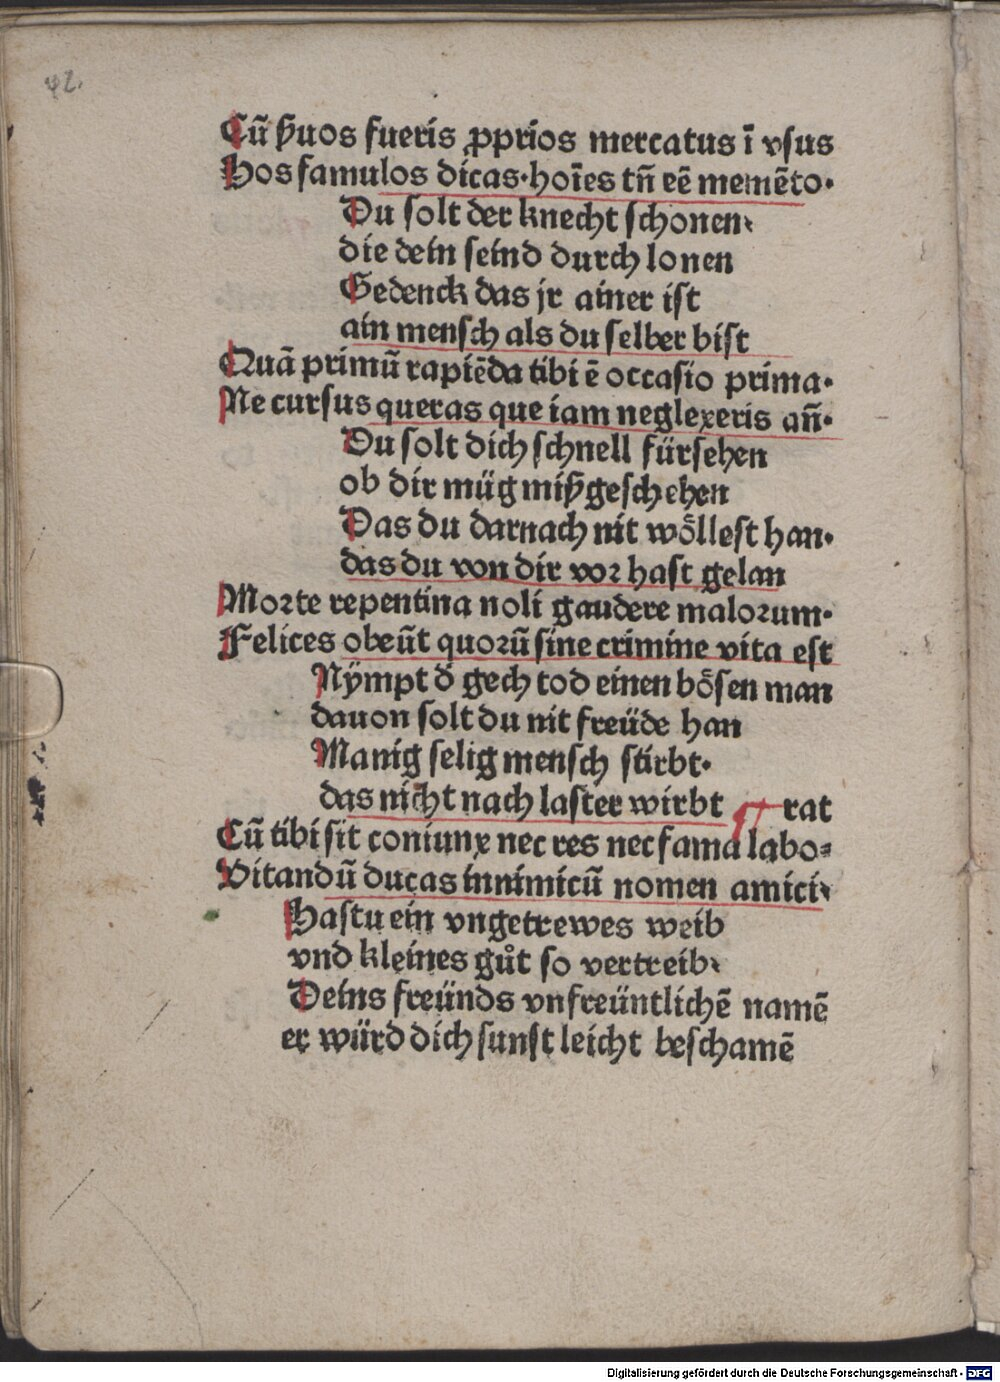 42.
Cū ẜuos fueris ꝓprios mercatus ī vsus
Hos famulos dicas·hoīes tñ eē memēto·
Du solt der knecht schonen
die dein seind durch lonen
Gedenck das jr ainer ist
ain mensch als du selber bist
Quā primū rapiēda tibi ē occasio prima·
Ne cursus queras que iam neglexeris añ·
Du solt dich schnell fürsehen
ob dir müg mißgeschehen
Das du darnach nit woͤllest han·
das du von dir vor hast gelan
Morte repentina noli gaudere malorum·
Felices obeūt quorū sine crimine vita est
Nÿmpt d̄ gech tod einen boͤsen man
dauon solt du nit freüde han
Manig selig mensch stirbt·
das nicht nach laster wirbt
rat
Cū tibi sit coniunx nec res nec fama labo⸗
Vitandū ducas innimicū nomen amici
Hastu ein vngetrewes weib
vnd kleines gůt so vertreib
Deins freünds vnfreüntlichē namē
er würd dich sunst leicht beschamē
Digitalisierung gefördert durch die Deutsche Forschungsgemeinschaft - DFG